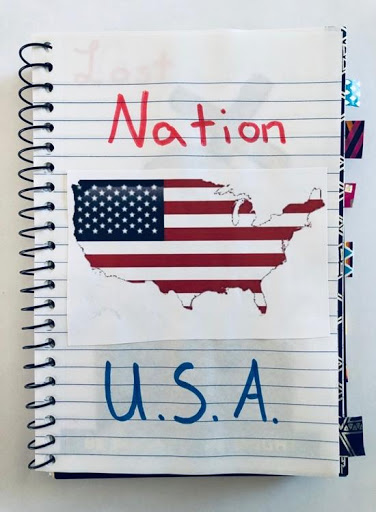 Nation
U.S.A.